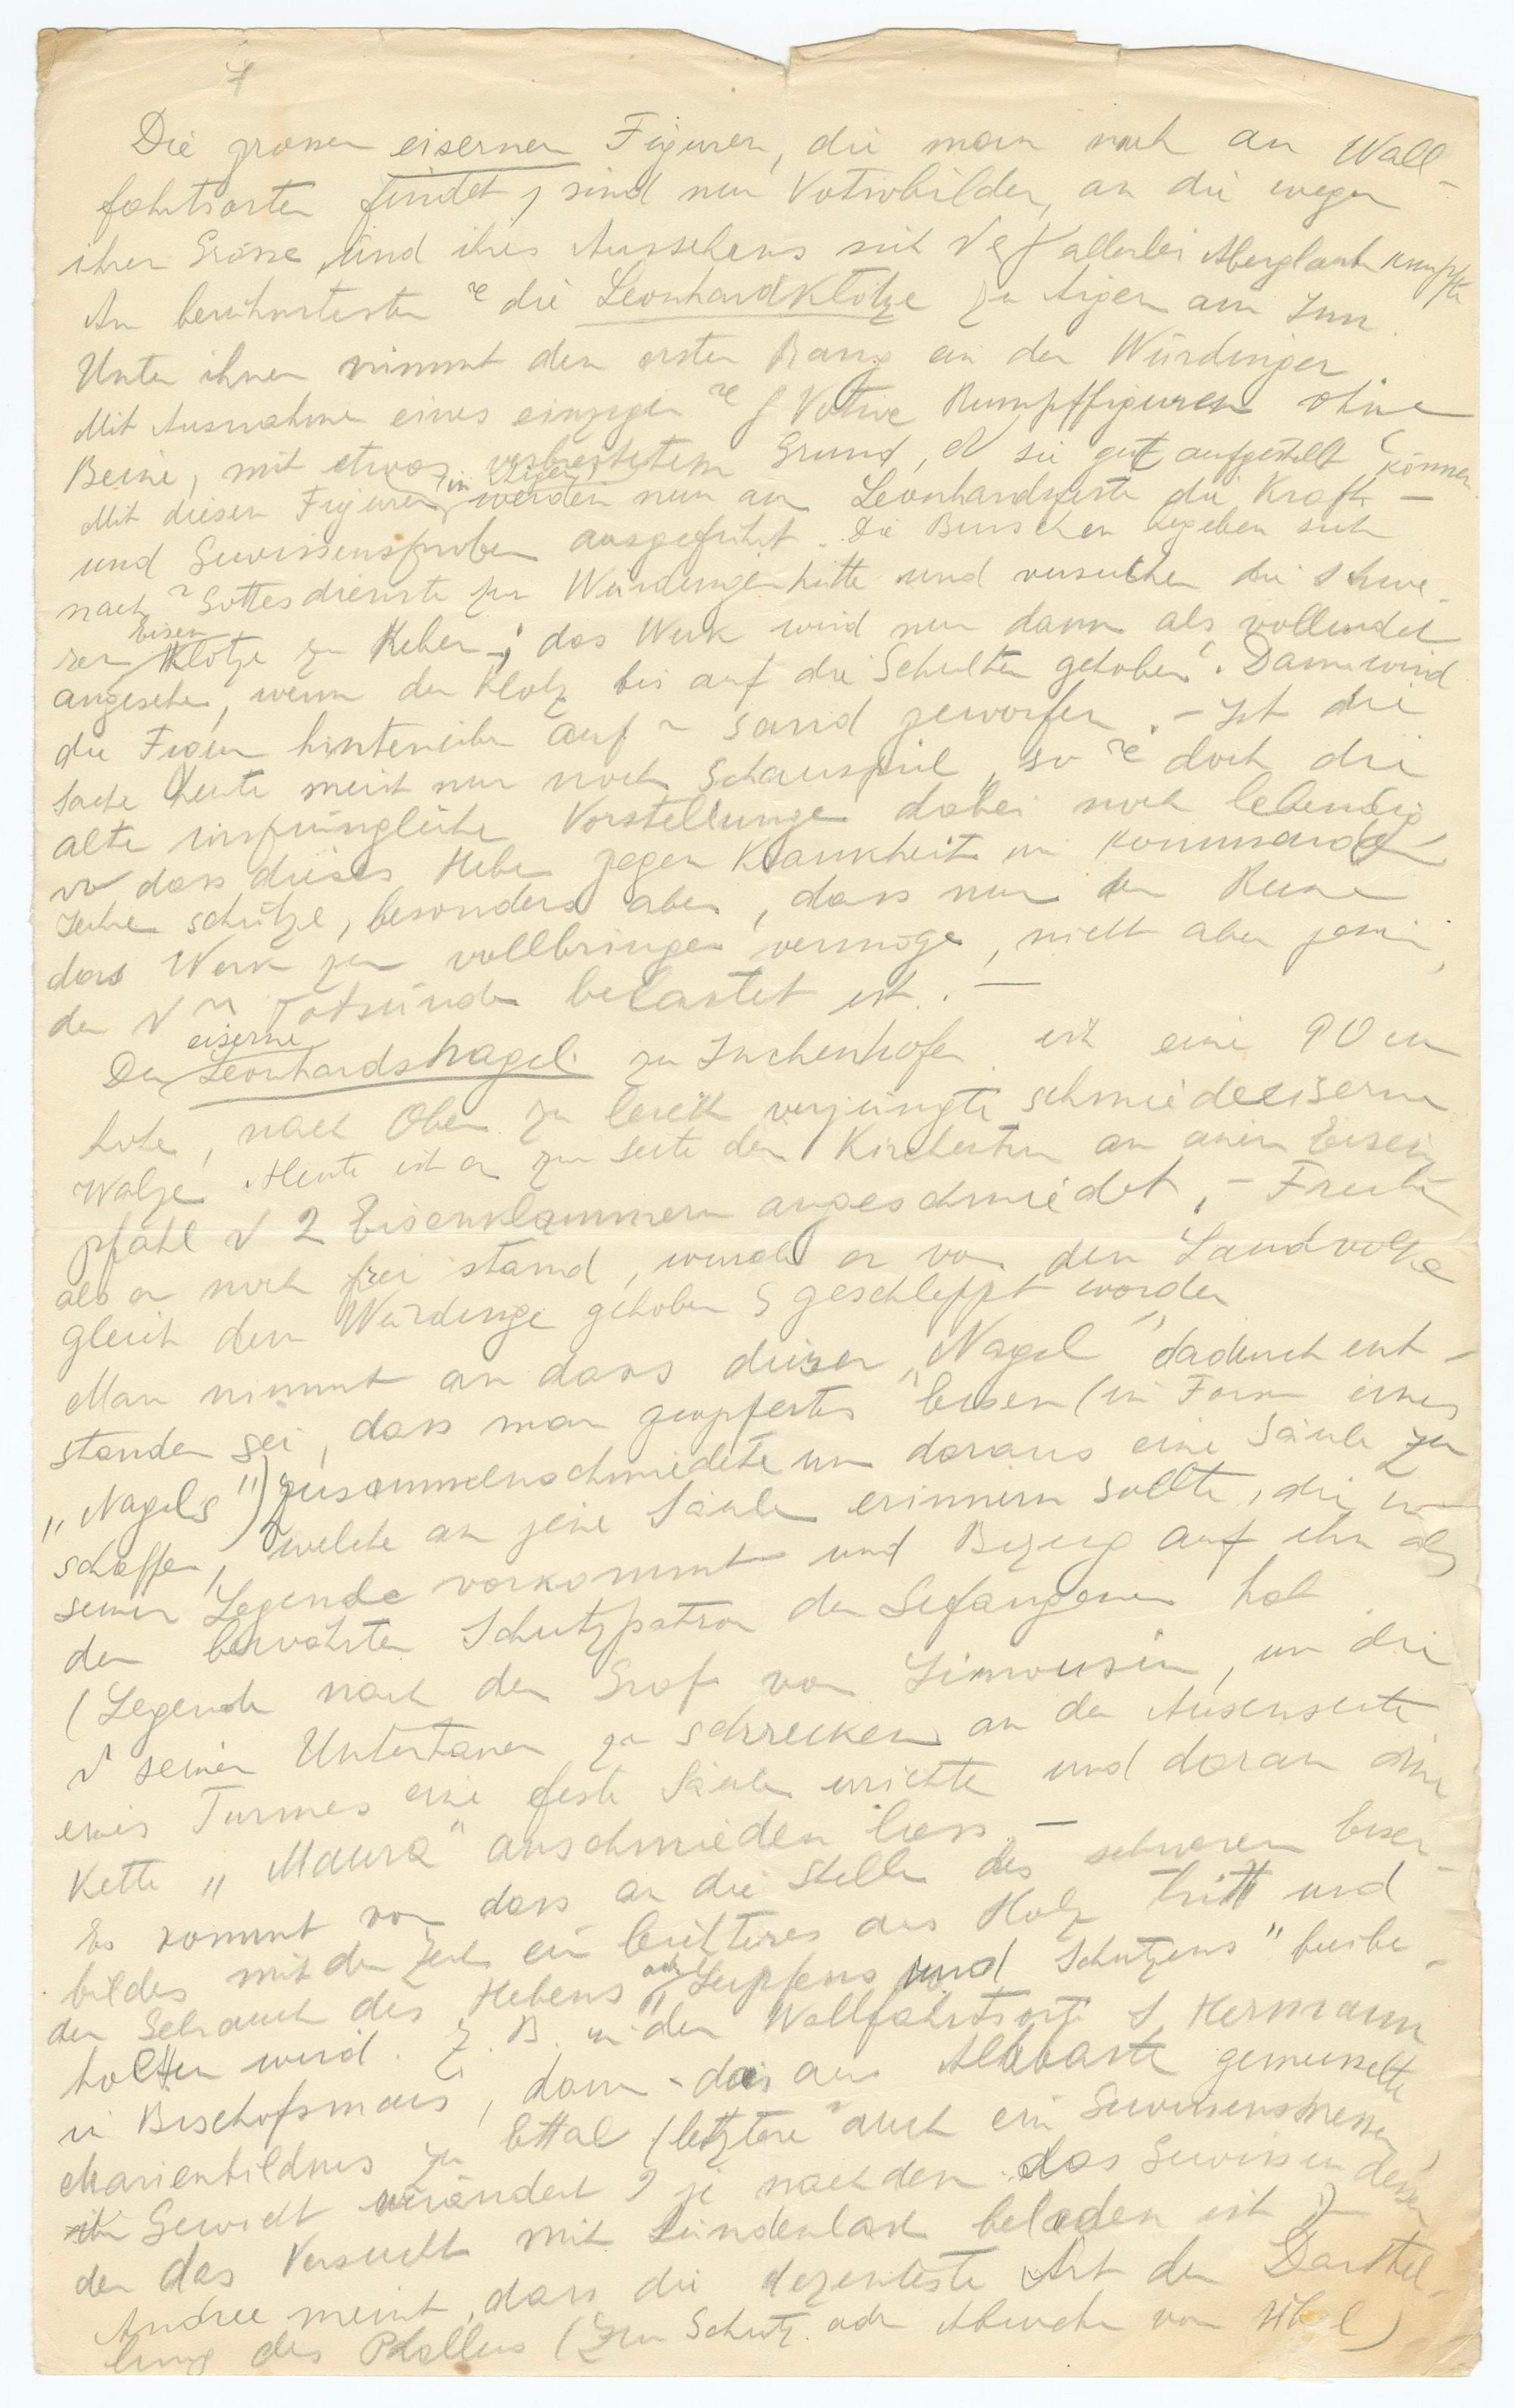 7
Die grossen eisernen Figuren, die man noch an Wall-
fahrtsorten findet, sind nur Votivbilder, an die wegen
ihrer Grösse und ihres Aussehens sich allerlei Aberglaube knüpft.
Am berühmtesten die Leonhardklötze zu Aigen am Inn.
Unter ihnen nimmt den ersten Rang ein der Würdinger
Mit Ausnahme eines einzigen Votive Rumpffiguren ohne
Beine, mit etwas verbreitetem Grund, sie gut aufgestellt können.
Mit diesen Figuren in Aigen werden nun am Leonhardfeste die Kraft-
und Gewissensproben ausgeführt. Die Burschen begeben sich
nach Gottesdienste zur Würdingerhütte und versuchen die schwe-
ren Eisen Klötze zu heben; das Werk wird nur dann als vollendet
angesehen, wenn der Klotz bis auf die Schulter gehoben. Dann wird
die Figur hintenüber auf Sand geworfen. - Ist die
Sache heute meist nur noch Schauspiel, so doch die
alte ursprüngliche Vorstellung dabei noch lebendig
dass dieses Heben gegen Krankheit im kommenden
Jahre schütze, besonders aber, dass nur der Reine
das Werk zu vollbringen vermöge, nicht aber jener,
der Todsünden belastet ist. -
Der eiserne Leonhardsnagel zu Inchenhofen ist eine 90 cm
hohe, nach Oben zu leicht verjüngte schmiedeeiserne
Walze. Heute ist er zur Seite der Kirchentür an einem Eisen-
pfahl 2 Eisenklammern angeschmiedet. - Früher
als er noch frei stand, wurde er von dem Landvolke
gleich dem Würdinger gehoben & geschleppt worden
Man nimmt an dass dieser „Nagel" dadurch ent-
standen sei, dass man geopfertes Eisen (in Form eines
„Nagels") zusammenschmiedete um daraus eine Säule zu
schaffen, welche an jene Säule erinnern sollte, die in
seiner Legende vorkommt und Bezug auf ihn als
den bewährten Schutzpatron der Gefangenen hat
(Legende nach der Graf von Limousin, um die
seiner Untertanen zu schrecken an der Aussenseite
eines Turmes eine feste Säule errichte und daran eine
Kette „Maura" anschmieden liess. -
Es kommt vor dass an die Stelle des schweren Eisen-
bildes mit der Zeit ein leichteres aus Holz tritt und
der Gebrauch des Hebens oder „Lupfens und Schutzens" beibe-
halten wird. Z. B. in dem Wallfahrtsorte S. Hermann
in Bischofsmais, dann das aus Alabaster gemeisselte
Marienbildnis zu Ettal (letztere auch ein Gewissensmesser,
Gewicht verändert je nachdem das Gewissen dessen
der das Versucht mit Sündenlast beladen ist)
Andree meint, dass die dezenteste Art der Darstel-
lung des Phallus (zum Schutz oder Abwehr von Übel)